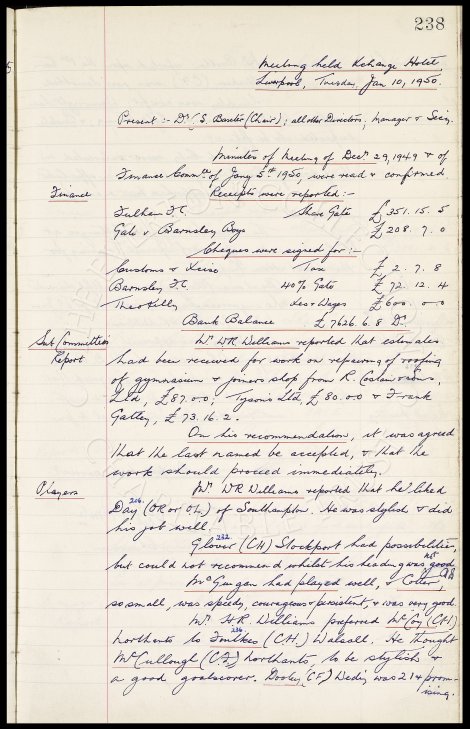 238
Meeting held Xchange Hotel
Liverpool, Tuesday, Jan 10, 1950.
Present :- Dr. C.S. Baxter (Chair); all other Directors, Manager & Secy.
Minutes of Meeting of Decr 29, 1949 & of
Finance Commee of Jany 5th 1950, were read & confirmed
Finance
Receipts were reported:-
Fulham F.C. Share Gate £351. 15. 5
Gate v Barnsley Boys £208. 7. 0
Cheques were signed for:-
Customs & Xcise Tax £ 2. 7. 8
Barnsley F.C. 40% Gate £ 72. 12. 4
Theo Kelly Wages £600. 0 0
Bank Balance £7626. 6. 8 Dr.
Sub Committee's
Report
Mr. WR Williams reported that estimates
had been received for work on repairing of roofing
of gymnasium & joiners shop from R. Costain & Sons,
Ltd, £87.0.0; Tysons Ltd, £80.0.0 & Frank
Gattey, £73.16.2.
On his recommendation, it was agreed
that the last named be accepted, & that the
work should proceed immediately.
Players
Mr. WR Williams reported that he liked
Day (OR or OL) of Southampton. He was stylish & did
his job well.
Glover (CH) Stockport had possibilities,
but could not recommend whilst his heading was not good
McGuigan had played well, &
so small, was speedy, courageous & persistent, & was very good.
Mr. WR Williams preferred McCoy (CH)
Northants to (CH) Walsall. He thought
McCullough (CF) Northants, to be stylish &
a good goalscorer. Dooley (CF) Wedy was 21 & prom-
ising.